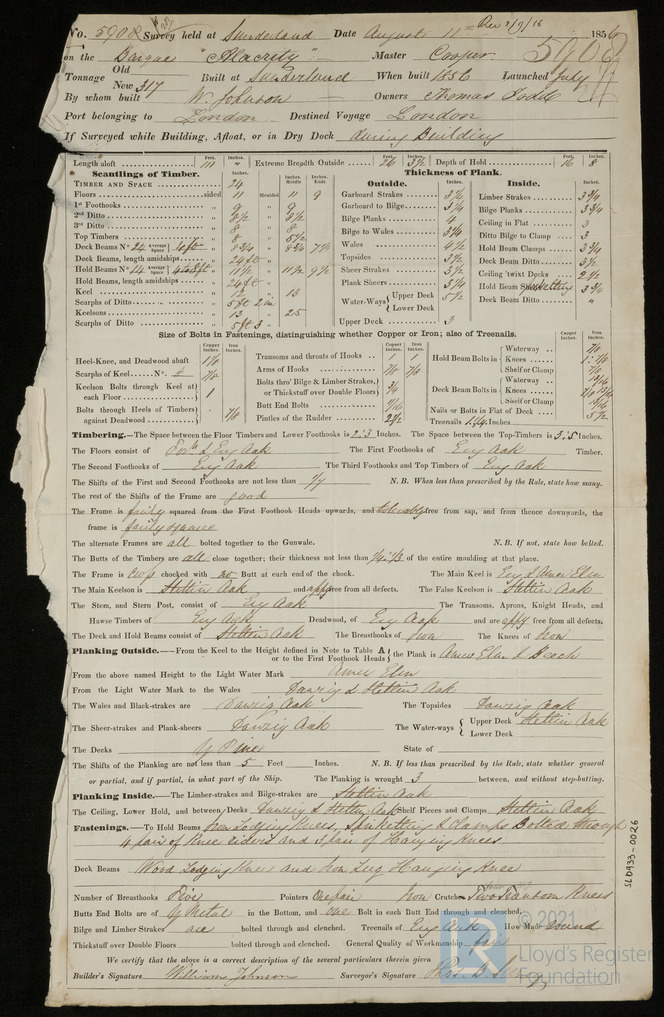 No. 5908 Survey held at Sunderland Date August 11th Rec 2/9/16 1856
on the Barque "Alacrity" Master Cooper 5908
Tonnage Old New 317 Built at Sunderland When built 1856 Launched July
By whom built W. Johnson Owners Thomas Todd
Port belonging to London Destined Voyage London
If Surveyed while Building, Afloat, or in Dry Dock during Building
Length aloft 111 Extreme Breadth Outside 26 3½ Depth of Hold 16 8
Scantlings of Timber. Thickness of Plank.
Outside. Inside.
TIMBER AND SPACE 24
Floors sided 11 Moulded 11 9
1st Foothooks 9 9
2nd Ditto 8½ 8½
3rd Ditto 8 8
Top Timbers 8 5½
Deck Beams No. 24 Average Space 4 ft 8¾ 8¾ 7½
Deck Beams, length amidships 24 ft
Hold Beams No. 14 Average Space 11½ 11½ 9½
Hold Beams, length amidships 24 ft
Keel 12 13
Scarphs of Ditto 5 ft 2 in
Keelsons 13 25
Scarphs of Ditto 5 ft 3
Garboard Strakes 3½
Garboard to Bilge 3¼
Bilge Planks 4
Bilge to Wales 3¼
Wales 4½
Topsides 3½
Sheer Strakes 3½
Plank Sheers 3½
Water-Ways Upper Deck 5½
Lower Deck
Upper Deck 3
Limber Strakes 3¾
Bilge Planks 3¾
Ceiling in Flat 3
Ditto Bilge to Clamp 3
Hold Beam Clamps 3¾
Deck Beam Ditto 3½
Ceiling 'twixt Decks 2½
Hold Beam Spirketting 3¾
Deck Beam Ditto "
Size of Bolts in Fastenings, distinguishing whether Copper or Iron; also of Treenails.
Copper Inches Iron Inches
Heel-Knee, and Deadwood abaft
Scarphs of Keel No.
Keelson Bolts through Keel at each Floor 1
Bolts through Heels of Timbers against Deadwood 7/8
Transoms and throats of Hooks 1
Arms of Hooks 7/8 7/8
Bolts thro' Bilge & Limber Strakes, or Thickstuff over Double Floors
Butt End Bolts 11/16
Pintles of the Rudder 2½
Hold Beam Bolts in Waterway
Knees
Shelf or Clamp
Deck Beam Bolts in Waterway
Knees
Shelf or Clamp
Nails or Bolts in Flat of Deck 5½
Treenails Inches
Timbering.—The Space between the Floor Timbers and Lower Foothooks is 2:3 Inches. The Space between the Top-Timbers is 3:5 Inches.
The Floors consist of & Eng Oak The First Foothooks of Eng Oak Timber.
The Second Foothooks of Eng Oak The Third Foothooks and Top Timbers of Eng Oak
The Shifts of the First and Second Foothooks are not less than 1/7 N. B. When less than prescribed by the Rule, state how many.
The rest of the Shifts of the Frame are good
The Frame is fairly squared from the First Foothook Heads upwards, and tolerably free from sap, and from thence downwards, the
frame is fairly square
The alternate Frames are all bolted together to the Gunwale. N. B. If not, state how bolted.
The Butts of the Timbers are all close together; their thickness not less than ¼:1/3 of the entire moulding at that place.
The Frame is chocked with no Butt at each end of the chock. The Main Keel is Eng & Amer Elm
The Main Keelson is Stettin Oak and free from all defects. The False Keelson is Stettin Oak
The Stem, and Stern Post, consist of Eng Oak The Transoms, Aprons, Knight Heads, and
Hawse Timbers of Eng Oak Deadwood, of Eng Oak and are free from all defects.
The Deck and Hold Beams consist of Stettin Oak The Breasthooks of Iron The Knees of Iron
Planking Outside.—From the Keel to the Height defined in Note to Table A or to the First Foothook Heads the Plank is Amer Elm & Beech
From the above named Height to the Light Water Mark Amer Elm
From the Light Water Mark to the Wales Danzig & Stettin Oak
The Wales and Black-strakes are Danzig Oak The Topsides Danzig Oak
The Sheer-strakes and Plank-sheers Danzig Oak The Water-ways Upper Deck Stettin Oak
Lower Deck
The Decks Y Pine State of
The Shifts of the Planking are not less than 5 Feet Inches. N. B. If less than prescribed by the Rule, state whether general
or partial, and if partial, in what part of the Ship. The Planking is wrought 3 between, and without step-butting.
Planking Inside.—The Limber-strakes and Bilge-strakes are Stettin Oak
The Ceiling, Lower Hold, and between Decks Danzig & Stettin Oak Shelf Pieces and Clamps Stettin Oak
Fastenings.—To Hold Beams Iron Lodging Knees, Spirketting & Clamps Bolted through
4 pair of Knee Riders and 3 pair of Hanging Knees
Deck Beams Wood Lodging Knees and Iron Lug Hanging Knee
Number of Breasthooks Five Pointers One pair Iron Crutches Two Four Transom Knees
Butts End Bolts are of Y Metal in the Bottom, and one Bolt in each Butt End through and clenched.
Bilge and Limber Strakes are bolted through and clenched. Treenails of Eng Oak How Made Wound
Thickstuff over Double Floors bolted through and clenched. General Quality of Workmanship fair
We certify that the above is a correct description of the several particulars therein given
Builder's Signature William Johnson Surveyor's Signature Thos. B.
SLD933-0026
R © 2021
Lloyd's Register
Foundation